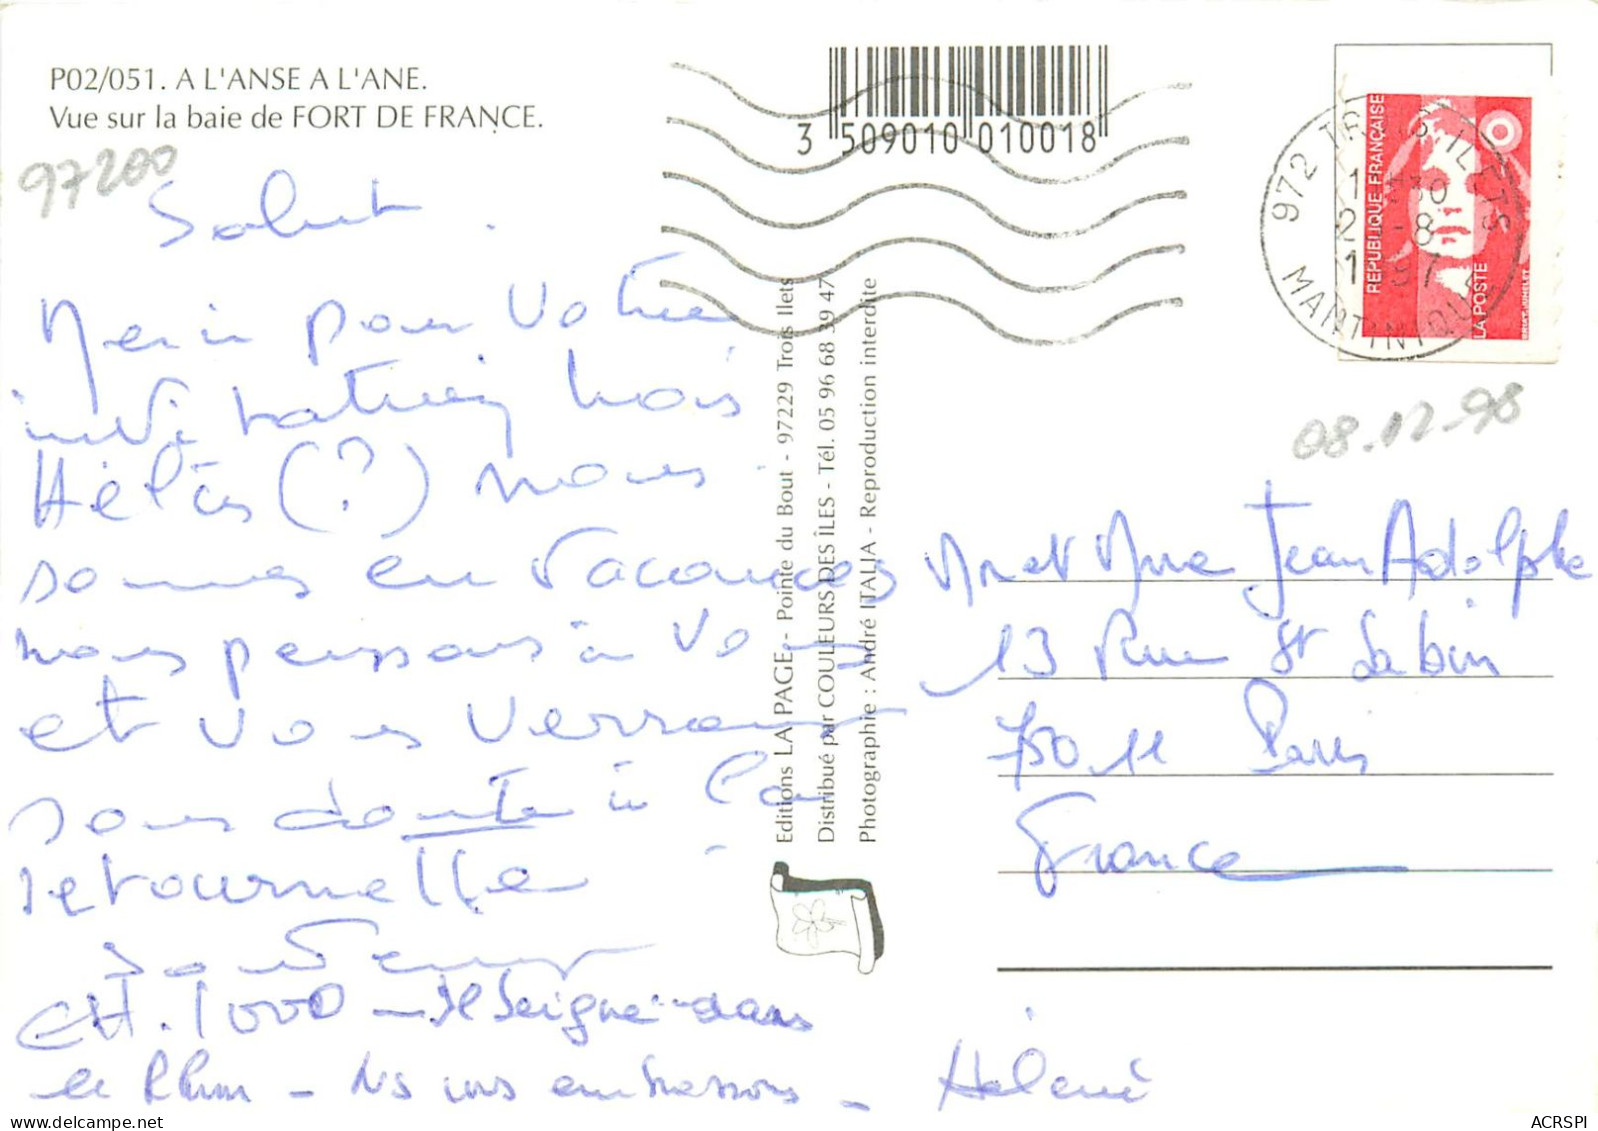 P02/051. A L'ANSE A L'ANE.
Vue sur la baie de FORT DE FRANCE.
3 509010 010018
97200
Salut.
Merci pour votre
invitation, mais
Hélas (?) nous
sommes en vacances
nous pensons à vous
et vous verrons
sans doute à la
retournelle
CH. 1000 - Il Seigne dans
le Rhum - Ns vs embrassons -
Hélène
Editions LA PAGE - Pointe du Bout - 97229 Trois Ilets
Distribué par COULEURS DES ÎLES - Tél. 05 96 68 39 47
Photographie : André ITALIA - Reproduction interdite
REPUBLIQUE FRANÇAISE
LA POSTE
972 TROIS ILETS
MARTINIQUE
08.12.98
Mr et Mme Jean Adolphe
13 Rue St Sabin
75011 Paris
France
ACRSPI